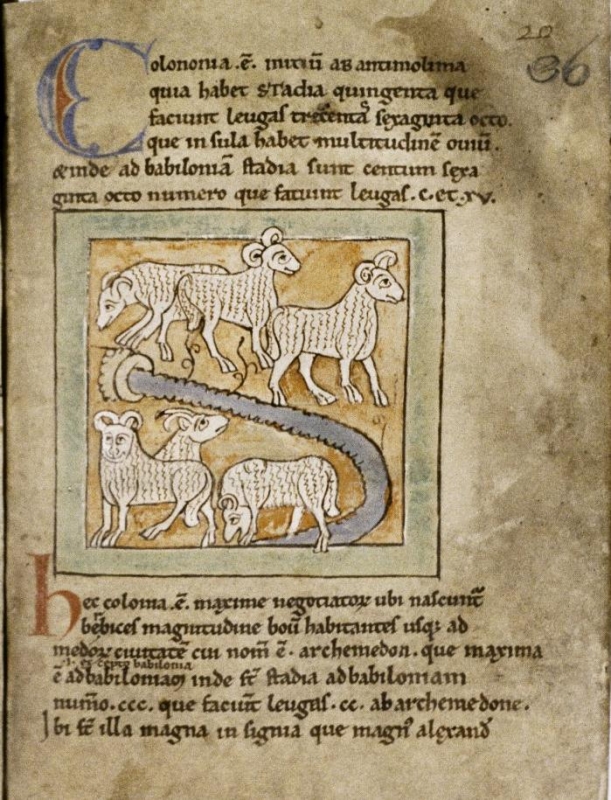 20
36
Colononia .ē. initiū ab antimolima
quia habet stadia quingenta que
faciunt leugas trecentas sexaginta octo.
que insula habet multitudinē ouiū.
&inde ad babiloniā stadia sunt centum sexa
ginta octo numero que faciunt leugas .c. et .xv.
hec colonia .ē. maxime negotiatoꝝ ubi nascunt᷑
berbices magnitudine boū habitantes usq; ad
medoꝝ ciuitatē cui nom̄ ē. archemedon. que maxima
babilonia
ē ad babiloniam inde s̄t stadia ad babiloniam
num̄o .ccc. que faciunt leugas .cc. ab archemedone.
Ibi s̄t illa magna insignia que magn᷒ alexand